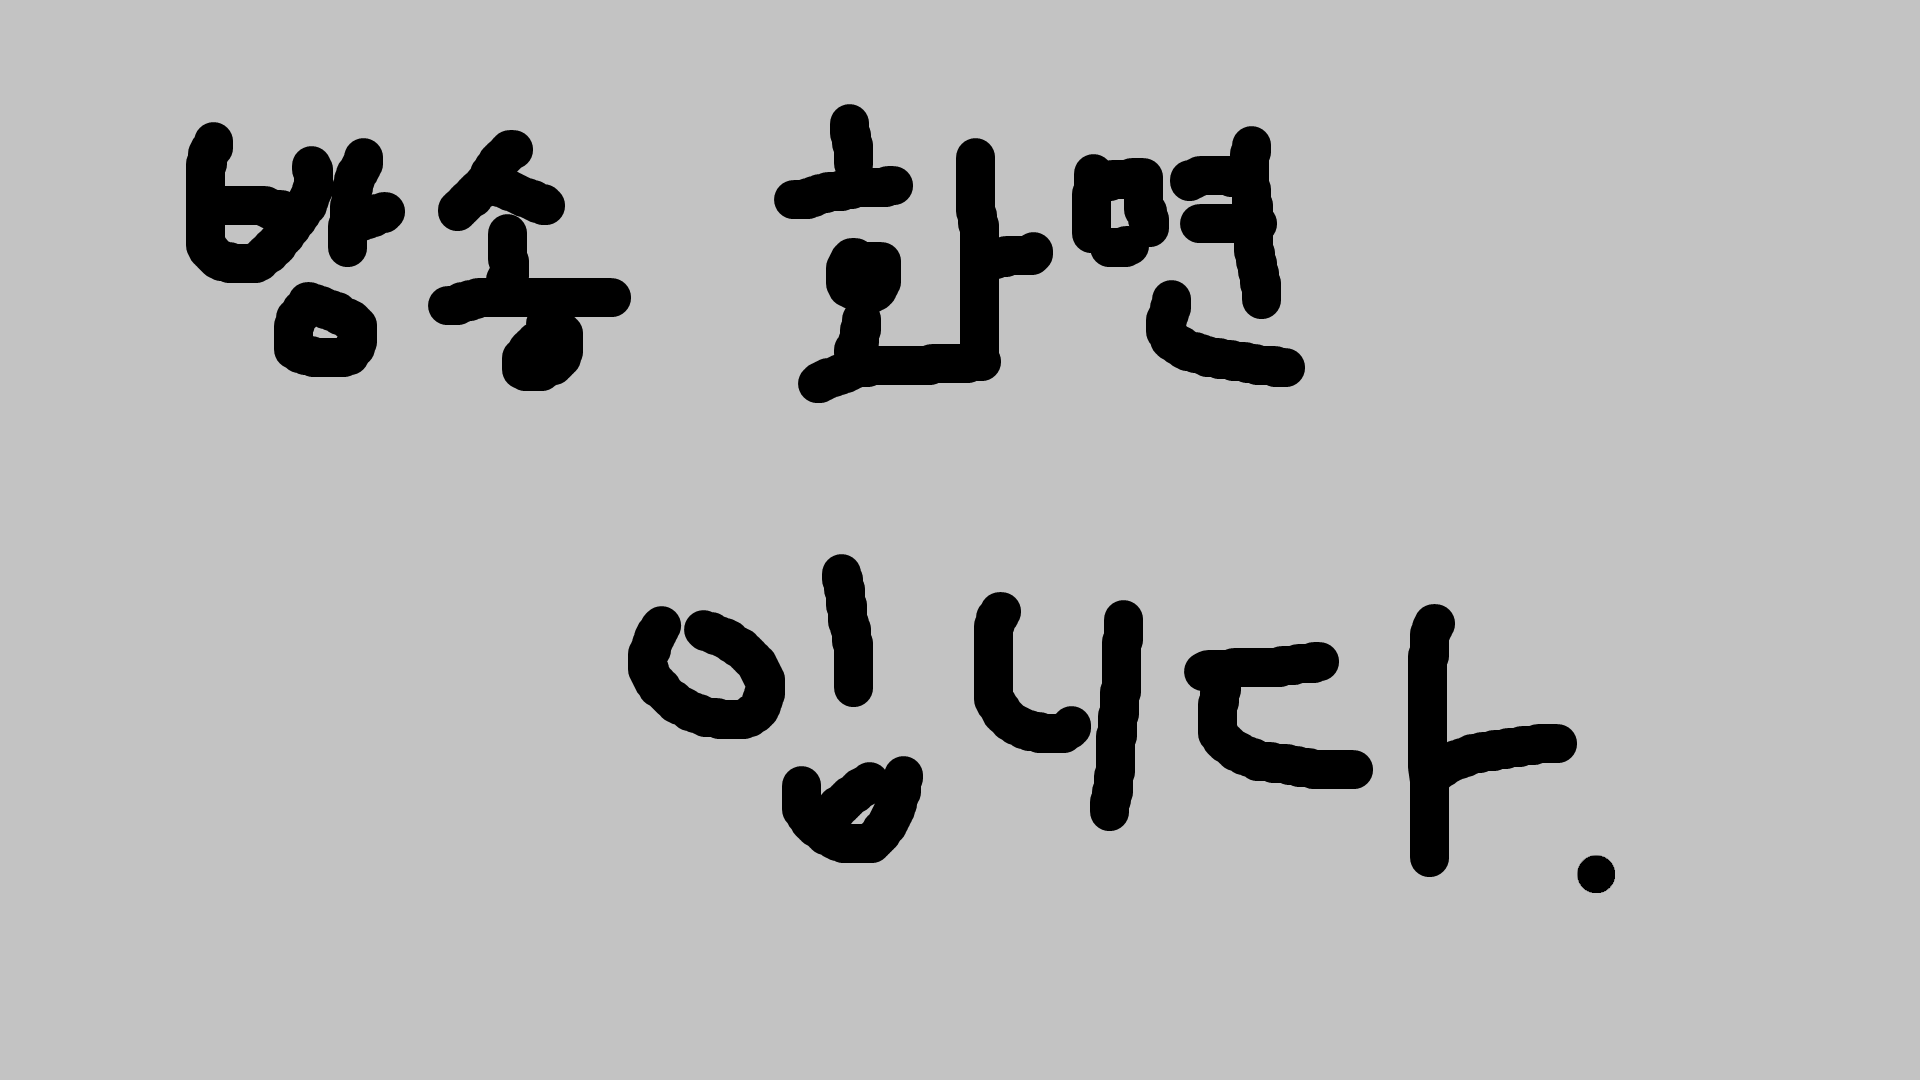 방송 화면
입니다.